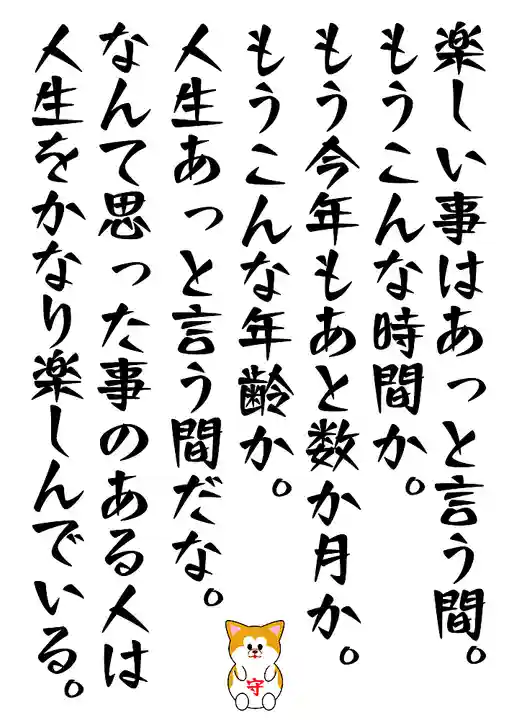 楽しい事はあっと言う間。
もうこんな時間か。
もう今年もあと数か月か。
もうこんな年齢か。
人生あっと言う間だな。
なんて思った事のある人は
人生をかなり楽しんでいる。
守